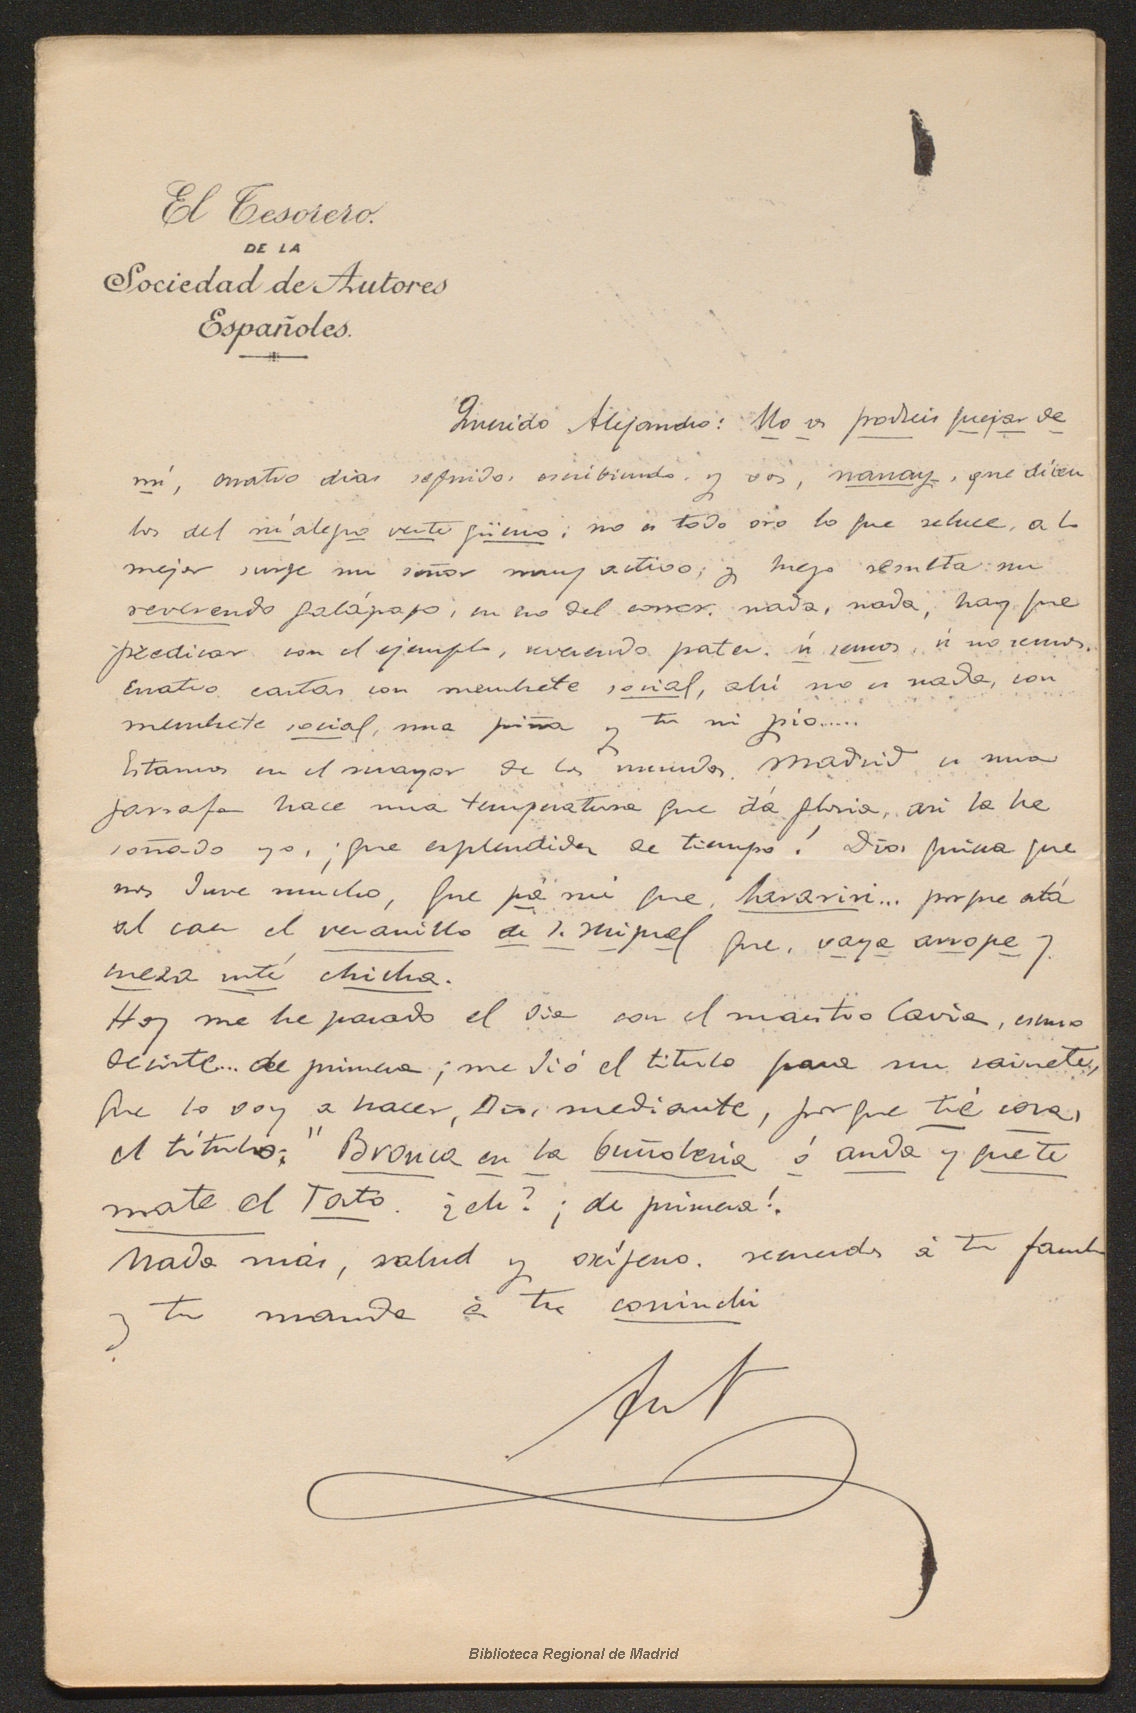 El Tesorero.
DE LA
Sociedad de Autores
Españoles.
Querido Alejandro: No os podreis quejar de
mí, cuatro dias seguidos escribiendo y vos, nanay, que dicen
los del m'alegro verte güeno; no es todo oro lo que reluce, a lo
mejor surge un señor muy activo; y luego resulta un
reverendo galápago, en eso del correr. nada, nada, hay que
predicar con el ejemplo, reverendo pater. ú semos, ú no semos.
Cuatro cartas con membrete social, ahí no es nada, con
membrete social, una piña y tu ni pío.....
Estamos en el mayor de los mundos. Madrid es una
garrafa hace una temperatura que dá gloria, asi la he
soñado yo, ¡que esplendidez de tiempo! Dios quiera que
nos dure mucho, que pá mí que, nararirí... porque está
al caer el veranillo de S. Miguel que, vaya arrope y
meza usté chicha.
Hoy me he pasado el dia con el maestro Cavia, como
decirte... de primera; me dió el titulo para un sainete,
que lo voy a hacer, Dios mediante, porque tié cosa,
el título: "Bronca en la buñolería ó anda y que te
mate el Tato. ¿eh? ¡de primera!.
Nada más, salud y oxígeno. recuerdos á tu famil
y tu manda á tu
Ant
Biblioteca Regional de Madrid